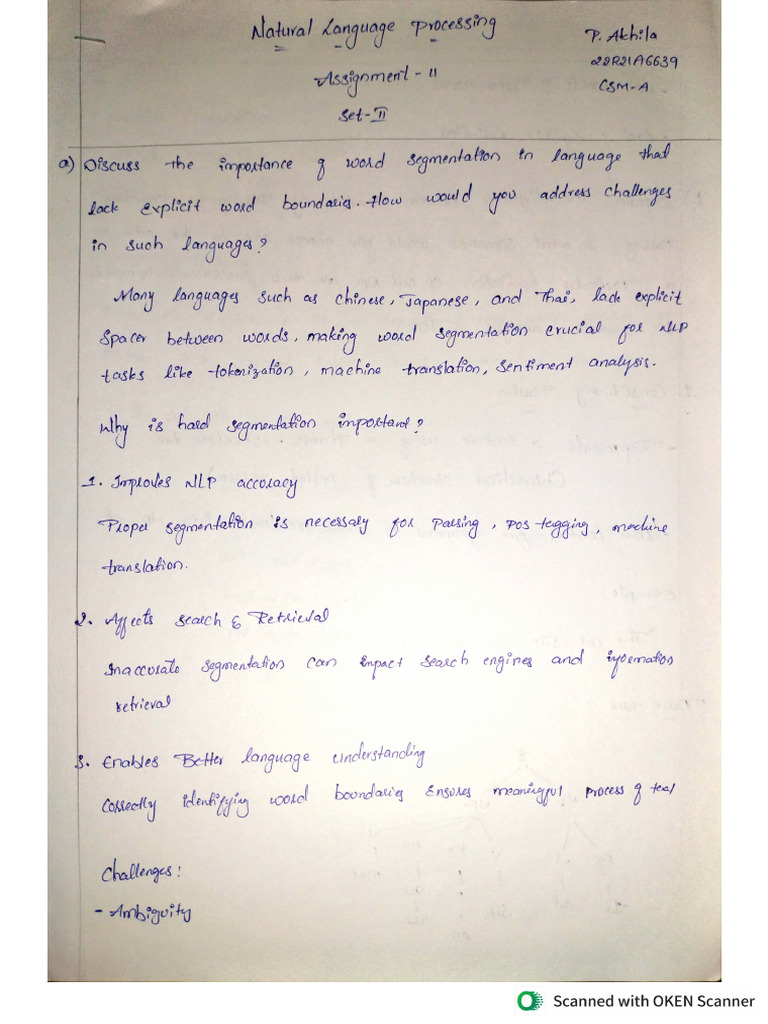 Natural Language Processing
P. Akhila
22R21A6639
CSM-A
Assignment - 11
Set-II
a) Discuss the importance of word segmentation in language that
lack explicit word boundaries. How would you address challenges
in such languages?
Many languages such as chinese, Japanese, and Thai, lack explicit
Spacer between words, making word segmentation crucial for NLP
tasks like tokenization, machine translation, sentiment analysis.
Why is hard segmentation important?
1. Improves NLP accuracy
Proper segmentation is necessary for parsing, pos tagging, machine
translation.
2. Affects search & Retrieval
Inaccurate segmentation can impact search engines and information
retrieval
3. Enables Better language understanding
Correctly identifying word boundaries Ensures meaningful process of text
Challenges:
- Ambiguity
Scanned with OKEN Scanner